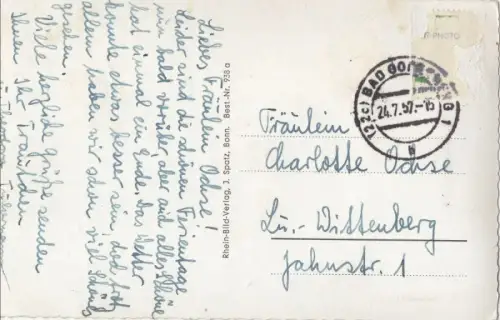 Liebes Fräulein Ochse!
Leider sind die schönen Ferientage
nun bald vorüber, aber mal alles Schöne
hat einmal ein Ende. Das Wetter
konnte etwas besser sein, doch trotz
allem haben wir schon viel Schönes
gesehen.
Viele herzliche Grüße senden
Ihnen Ihr Trautchen
Rhein-Bild-Verlag, J. Spatz, Bonn. Best.-Nr. 938 a
(22c) BAD GO
24.7.57.-15
Fräulein
Charlotte Ochse
Lu.-Wittenberg
Jahnstr. 1